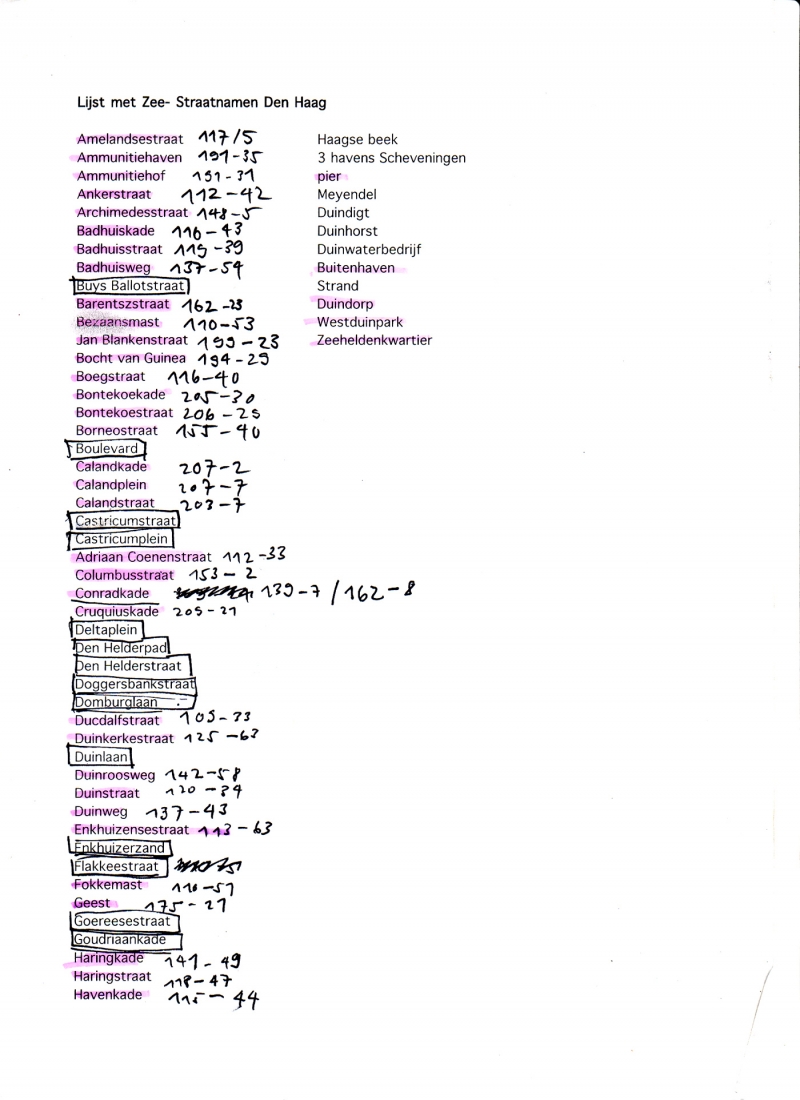 Lijst met Zee- Straatnamen Den Haag
Amelandsestraat 117/5
Ammunitiehaven 191-35
Ammunitiehof 191-31
Ankerstraat 112-42
Archimedesstraat 148-5
Badhuiskade 116-43
Badhuisstraat 119-39
Badhuisweg 137-54
Buys Ballotstraat
Barentszstraat 162-23
Bezaansmast 110-53
Jan Blankenstraat 199-23
Bocht van Guinea 194-29
Boegstraat 116-40
Bontekoekade 205-30
Bontekoestraat 206-25
Borneostraat 155-40
Boulevard
Calandkade 207-2
Calandplein 207-7
Calandstraat 203-7
Castricumstraat
Castricumplein
Adriaan Coenenstraat 112-33
Columbusstraat 153-2
Conradkade 139-7 / 162-8
Cruquiuskade 205-21
Deltaplein
Den Helderpad
Den Helderstraat
Doggersbankstraat
Domburglaan
Ducdalfstraat
Duinkerkestraat 125-63
Duinlaan
Duinroosweg 142-58
Duinstraat
Duinweg 137-43
Enkhuizensestraat 113-63
Enkhuizerzand
Flakkeestraat
Fokkemast 110-51
Geest 175-21
Goereesestraat
Goudriaankade
Haringkade 141-49
Haringstraat 118-47
Havenkade 115-44
Haagse beek
3 havens Scheveningen
pier
Meyendel
Duindigt
Duinhorst
Duinwaterbedrijf
Buitenhaven
Strand
Duindorp
Westduinpark
Zeeheldenkwartier